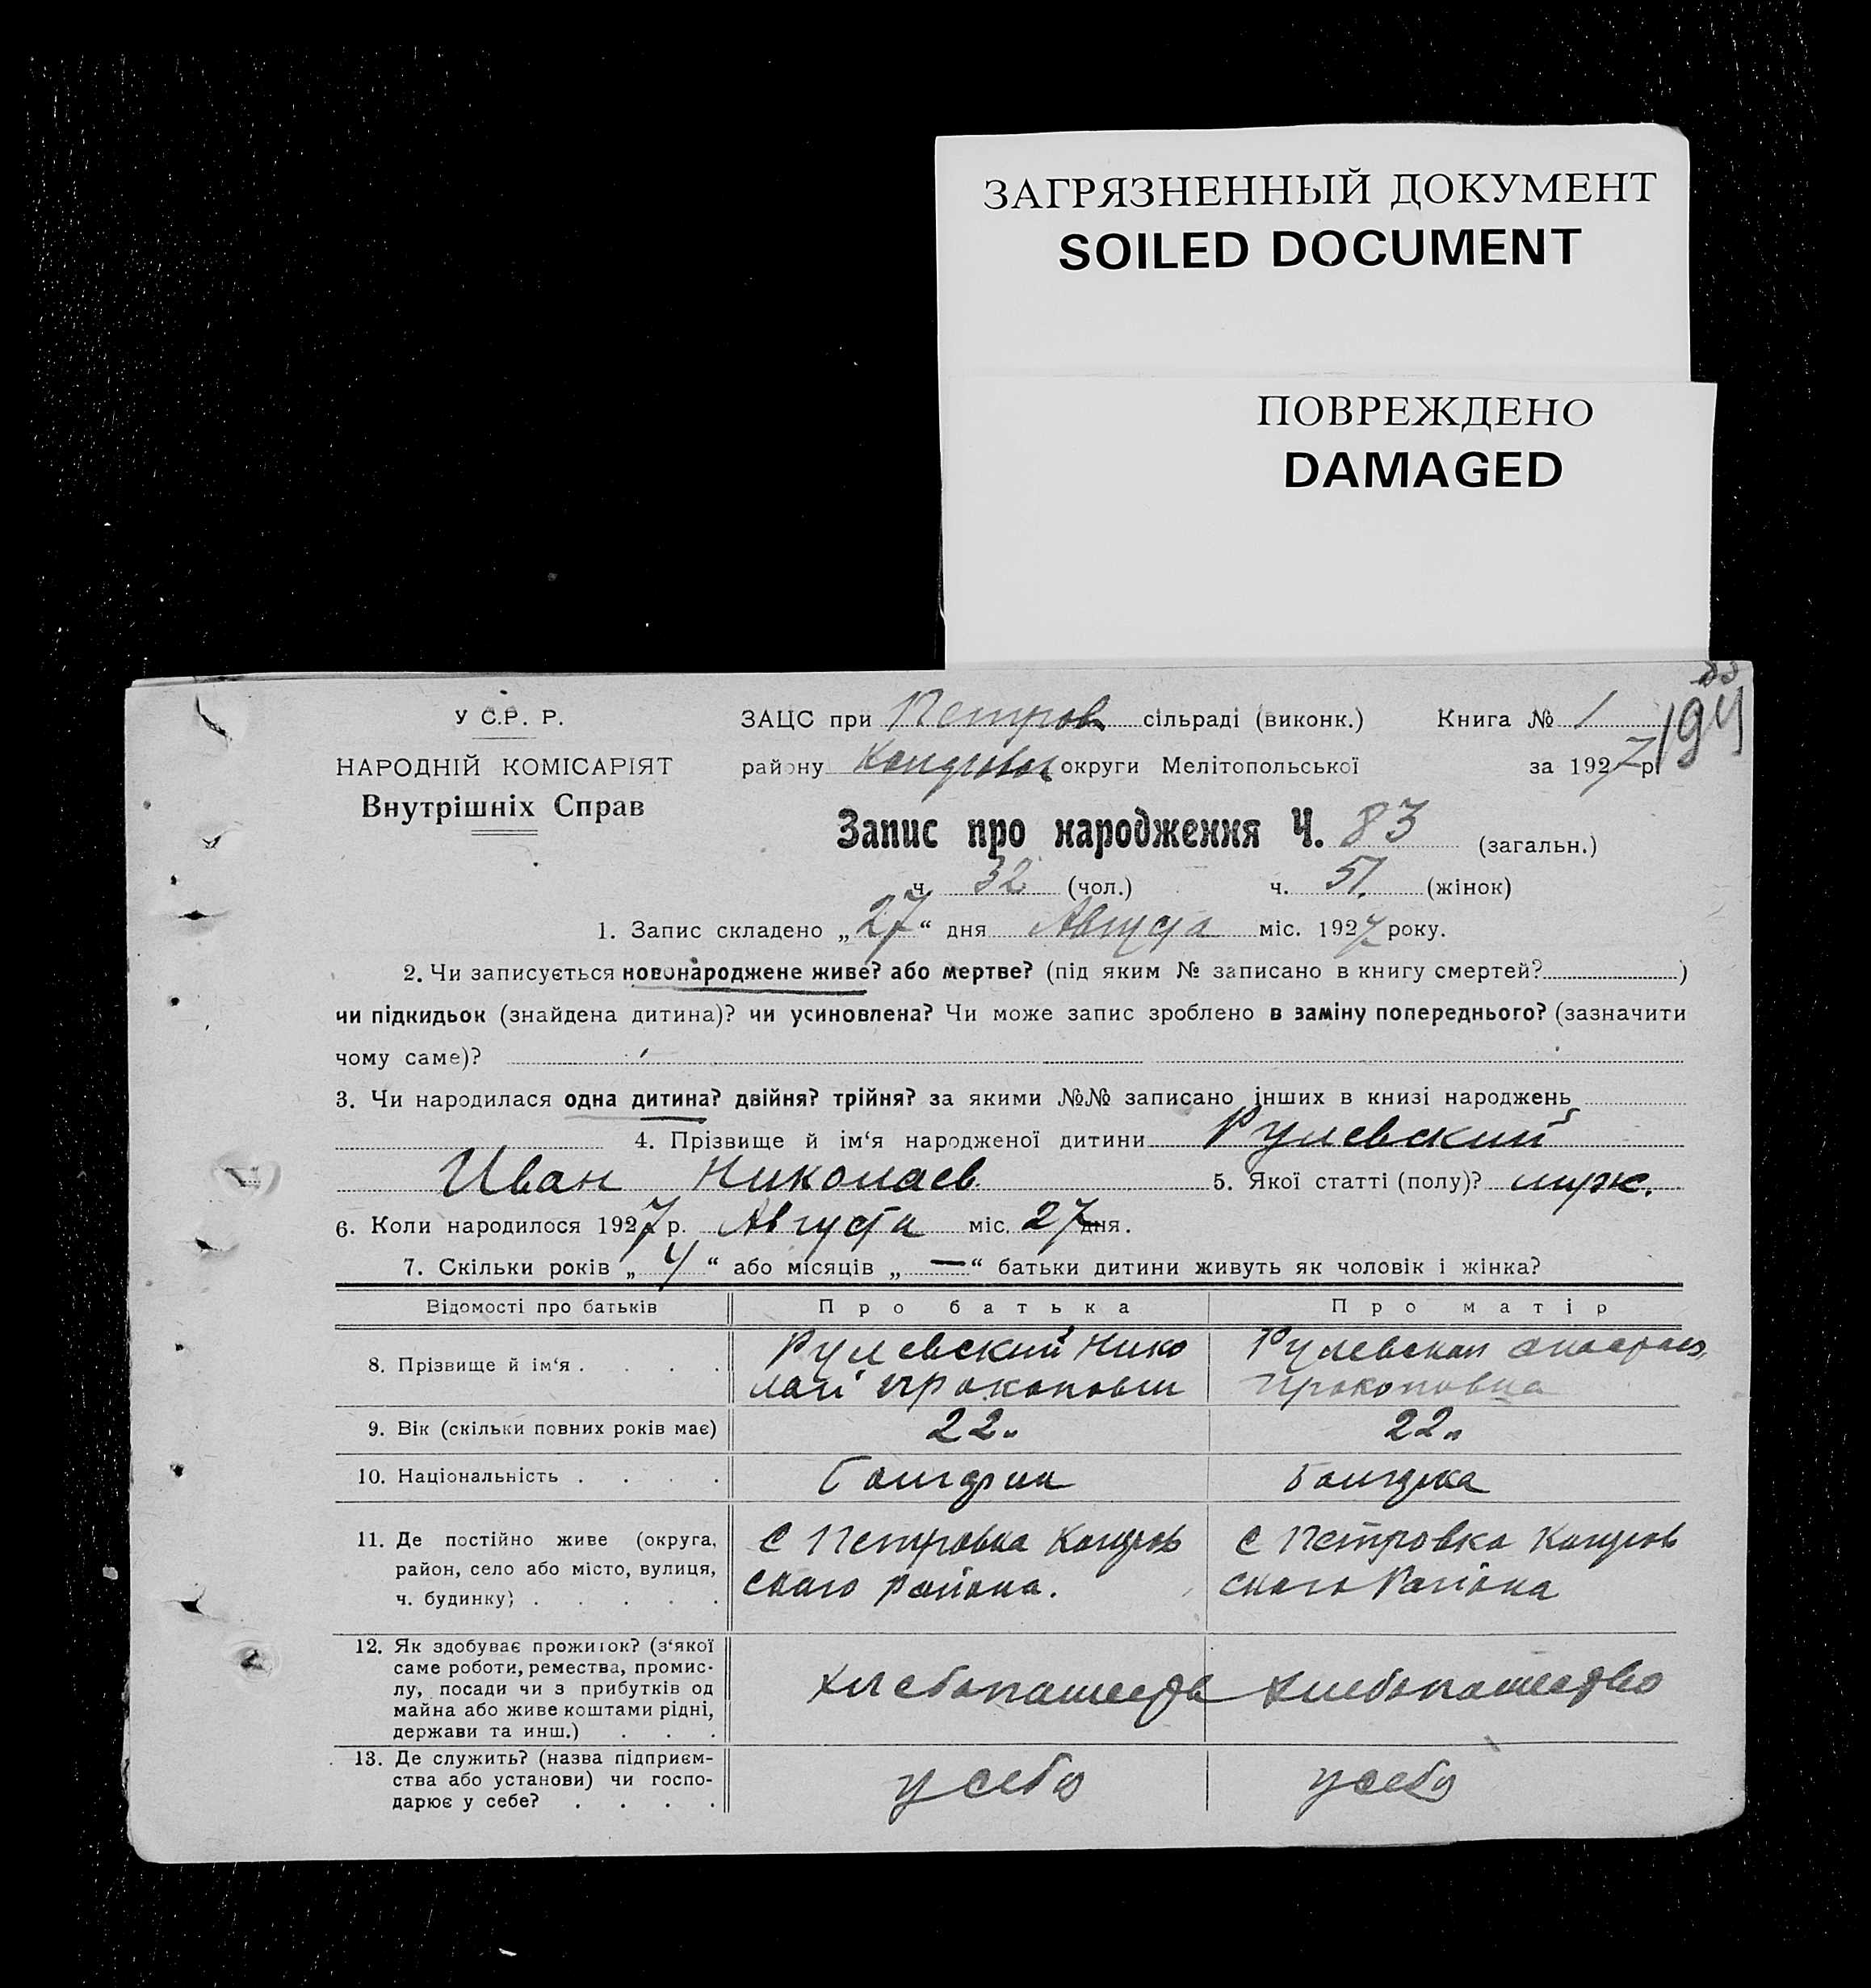 ЗАГРЯЗНЕННЫЙ ДОКУМЕНТ
SOILED DOCUMENT
ПОВРЕЖДЕНО
DAMAGED
У С.Р. Р.
НАРОДНІЙ КОМІСАРІЯТ
Внутрішніх Справ
ЗАЦС при Петров сільраді (виконк.) Книга № 1
194
району округи Мелітопольської за 1927 р.
Запис про народження Ч. 83 (загальн.)
ч. 32 (чол.) ч. 51. (жінок)
1. Запис складено „27“ дня Августа міс. 1927 року.
2. Чи записується новонароджене живе? або мертве? (під яким № записано в книгу смертей? )
чи підкидьок (знайдена дитина)? чи усиновлена? Чи може запис зроблено в заміну попереднього? (зазначити
чому саме)?
3. Чи народилася одна дитина? двійня? трійня? за якими №№ записано інших в книзі народжень
4. Прізвище й ім‘я народженої дитини Рулевский
Иван Николаев 5. Якої статті (полу)? муж.
6. Коли народилося 1927 р. Августа міс. 27 дня.
7. Скільки років „ 4 “ або місяців „ — “ батьки дитини живуть як чоловік і жінка?
Відомості про батьків Про батька Про матір
8. Прізвище й ім‘я . . . .
Рулевский Нико
лай Прокопови
Рулевская
Прокоповна
9. Вік (скільки повних років має) 22„ 22„
10. Національність . . . .
11. Де постійно живе (округа,
район, село або місто, вулиця,
ч. будинку) . . . . .
С Петровка
скаго района.
С Петровка
скаго Района
12. Як здобуває прожиток? (з‘якої
саме роботи, ремества, промис-
лу, посади чи з прибутків од
майна або живе коштами рідні,
держави та инш.) . . .
хлебопашество хлебопашество
13. Де служить? (назва підприєм-
ства або установи) чи госпо-
дарює у себе? . . . .
у себя у себя